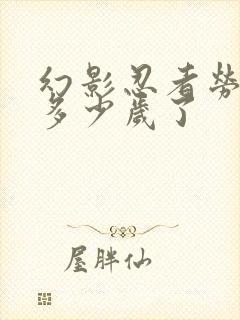 幻影忍者劳
多少歲了
屋胖仙